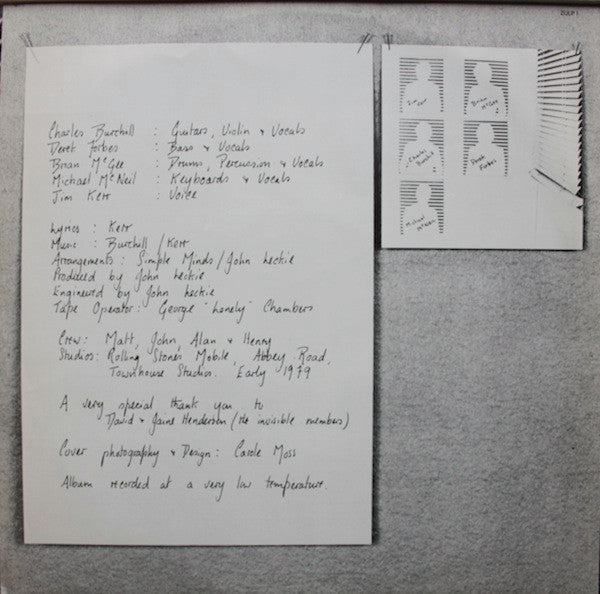 ZULP 1
Charles Burchill : Guitars, Violin & Vocals
Derek Forbes : Bass & Vocals
Brian McGee : Drums, Percussion & Vocals
Michael McNeil : Keyboards & Vocals
Jim Kerr : Voice
Lyrics : Kerr
Music : Burchill / Kerr
Arrangements : Simple Minds / John Leckie
Produced by John Leckie
Engineered by John Leckie
Tape Operator : George "Lonely" Chambers
Crew : Matt, John, Alan & Henry
Studios : Rolling Stones Mobile, Abbey Road,
Townhouse Studios. Early 1979
A very special thank you to
David & Jaine Henderson (the invisible members)
Cover photography & Design : Carole Moss
Album recorded at a very low temperature.
Jim Kerr
Brian McGee
Charles Burchill
Derek Forbes
Michael McNeil